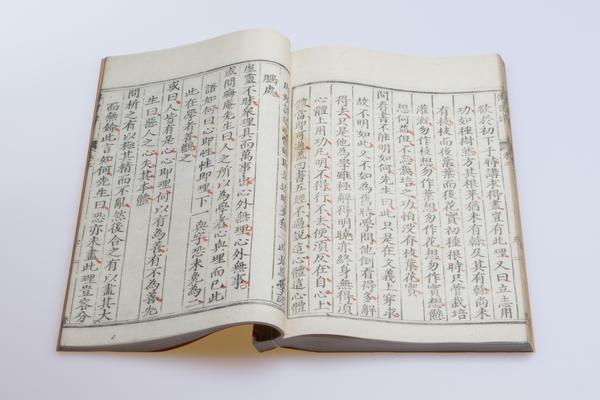 欲於初下手時講求得盡豈有此理又曰立志用
功如種樹然方其根芽猶未有榦及其有榦尚未
有枝枝而後葉葉而後花實初種根時只管栽培
灌溉勿作枝想勿作葉想勿作花想勿作實想懸
想何益但不忘栽培之功怕沒有枝葉花實
問看書不能明如何先生曰此只是在文義上穿求
故不明如此又不如為舊時學問他到看得多解
得去只是他為學雖極解得明曉亦終身無得須
心體上用功凡明不得行不去便須反在自心上
體當即可通蓋四書五經不過說這心體這心體
腦處
虛靈不昧衆理具而萬事出心外無理心外無事
或問晦庵先生曰人之所以為學者心與理而已此
語如何曰心即性性即理下一與字恐未免為二
此在學者善觀之
或曰人皆有是心心即理何以有為善有不為善先
生曰惡人之心失其本體
問析之有以極其精而不亂然後合之有以盡其大
而無餘此言如何先生曰恐亦未盡此理豈容分